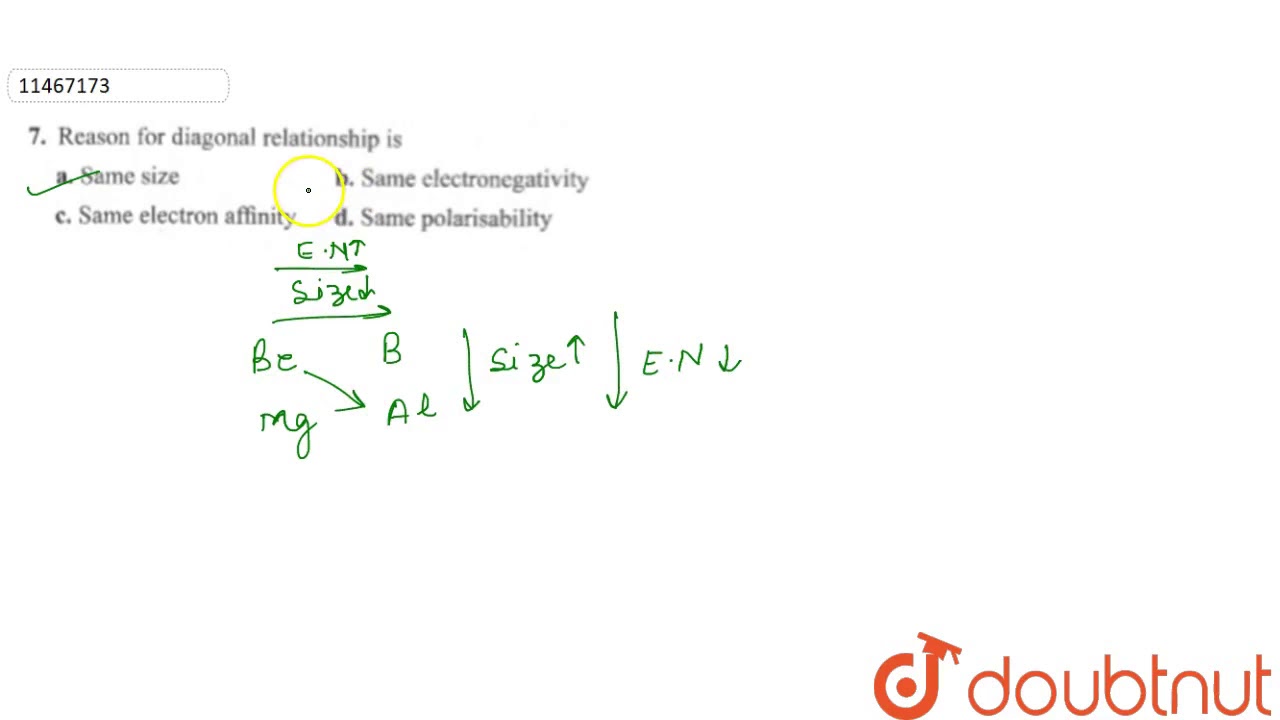 11467173
7. Reason for diagonal relationship is
a. Same size b. Same electronegativity
c. Same electron affinity d. Same polarisability
E.N↑
Size↓
Be B Size↑ E.N↓
Mg Al
doubtnut